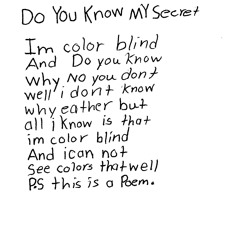 Do You Know MY Secret
Im color blind
And Do you know
why No you dont
well i dont know
why eather but
all i know is that
im color blind
And ican not
See colors that well
P.S this is a Poem.